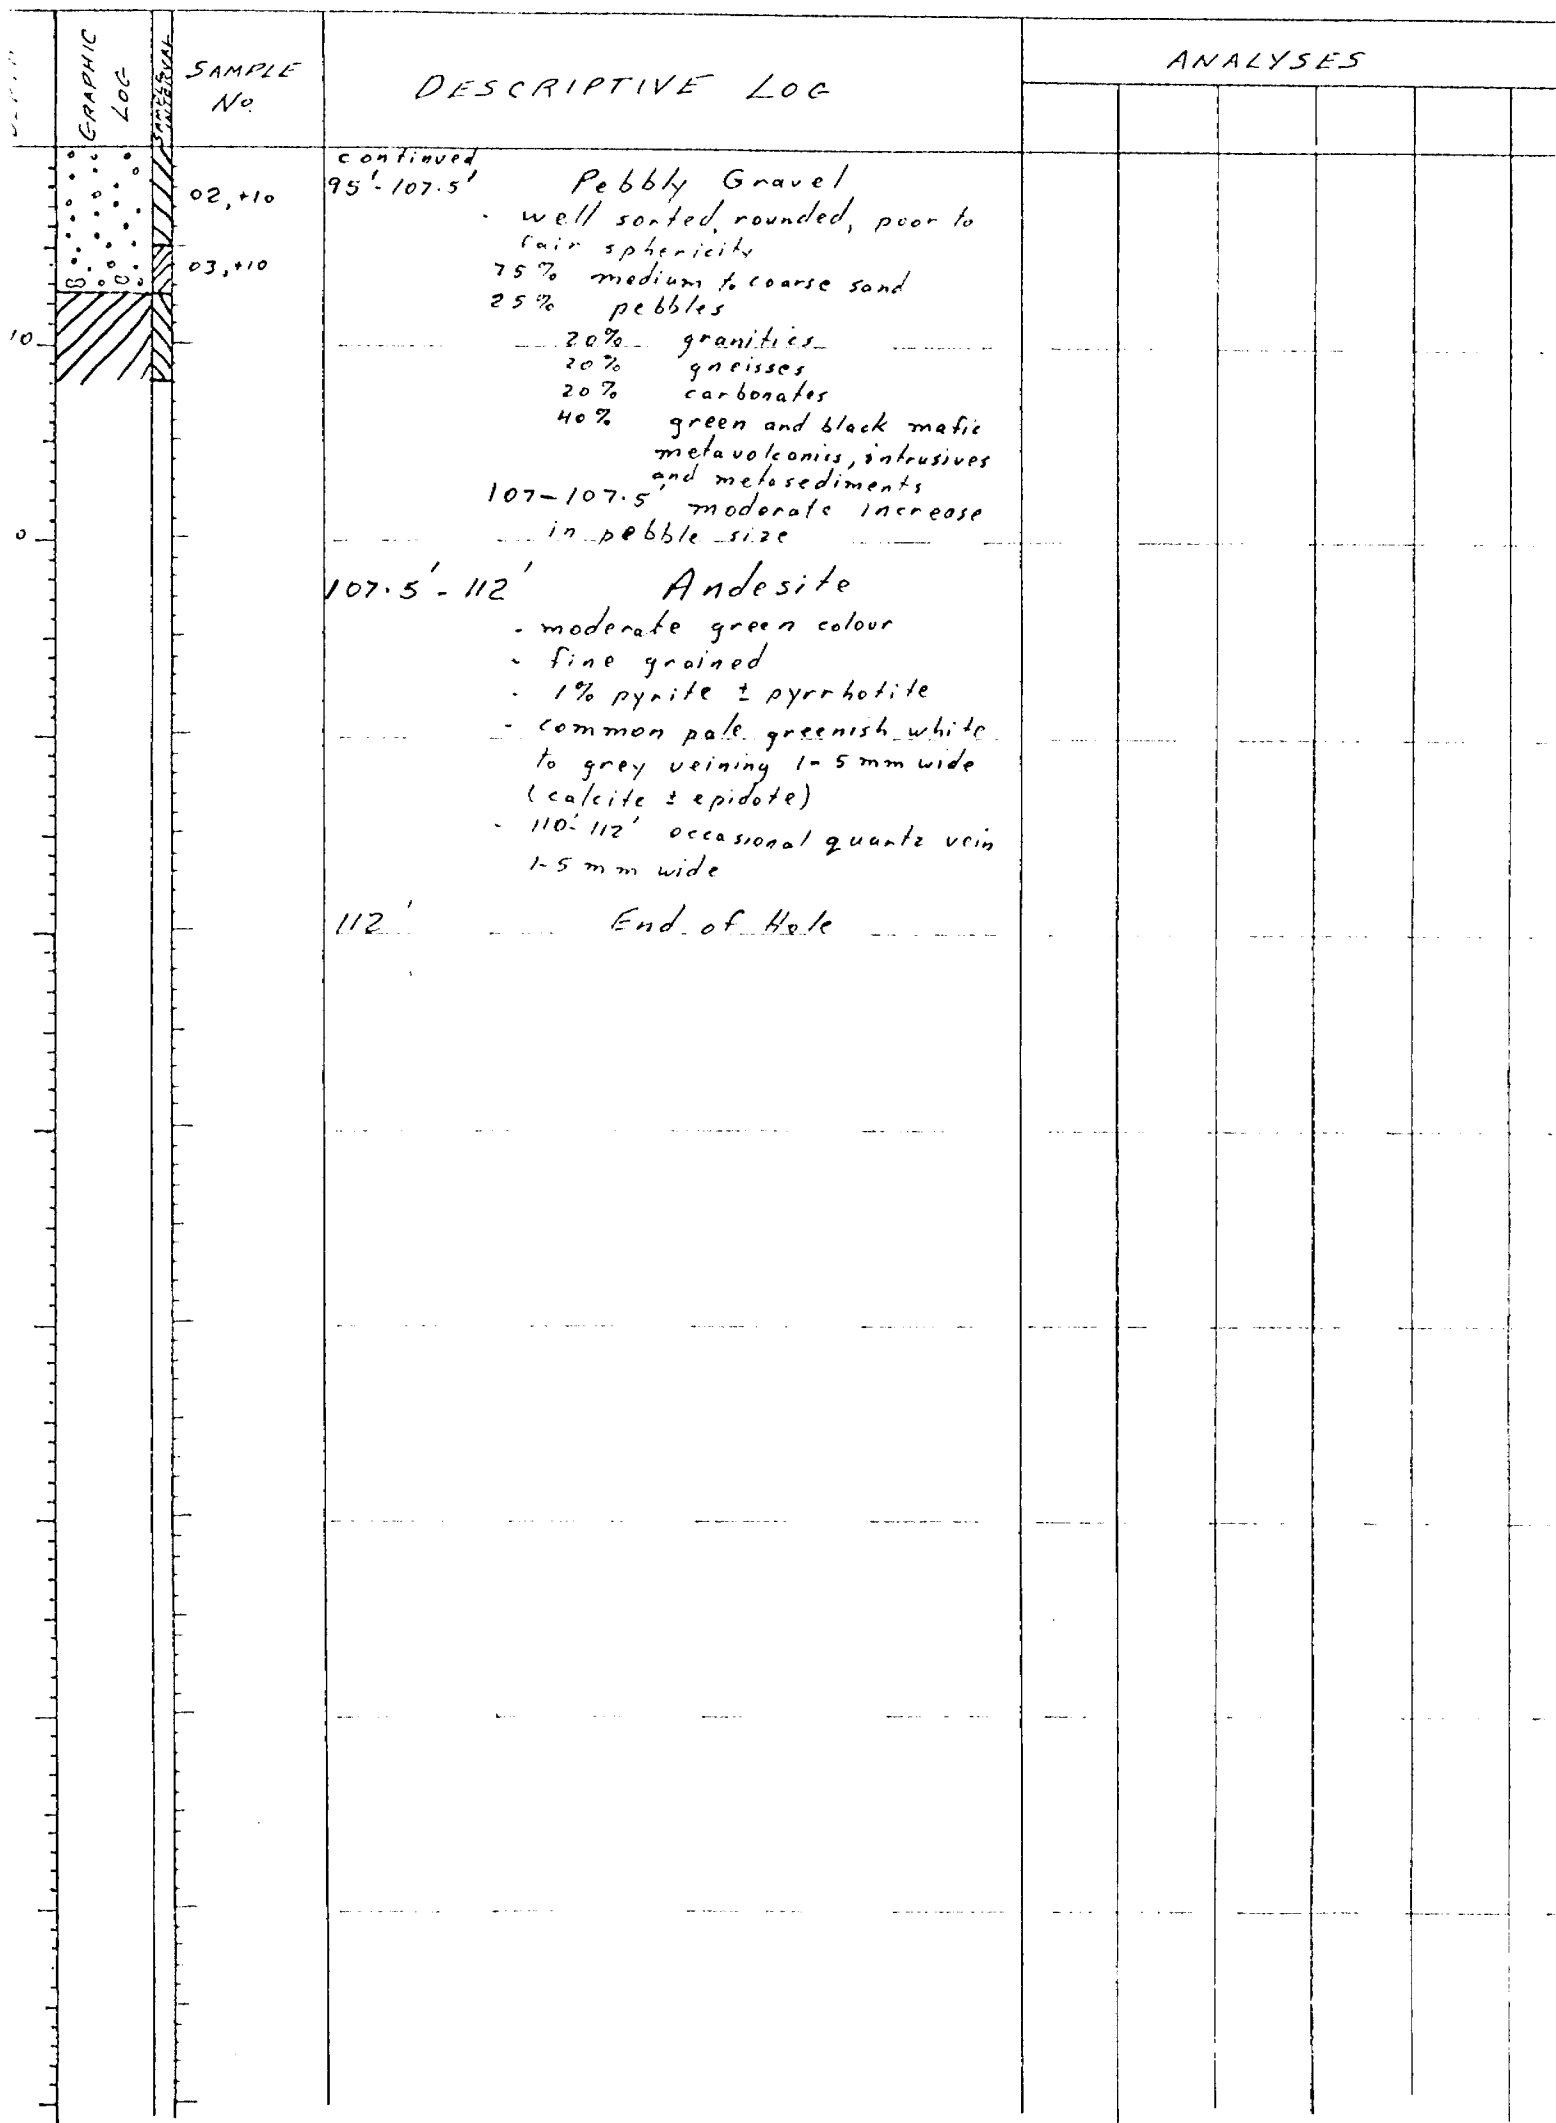 GRAPHIC
LOG
SAMPLE
INTERVAL
SAMPLE
No.
DESCRIPTIVE LOG
ANALYSES
continued
95'-107.5' Pebbly Gravel
- well sorted, rounded, poor to
fair sphericity
75% medium to coarse sand
25% pebbles
20% granitics
20% gneisses
20% carbonates
40% green and black mafic
metavolcanics, intrusives
and metasediments
107-107.5' moderate increase
in pebble size
107.5'-112' Andesite
- moderate green colour
- fine grained
- 1% pyrite ± pyrrhotite
- common pale greenish white
to grey veining 1-5 mm wide
(calcite ± epidote)
- 110'-112' occasional quartz vein
1-5 mm wide
112' End of Hole
02,+10
03,+10
10
0